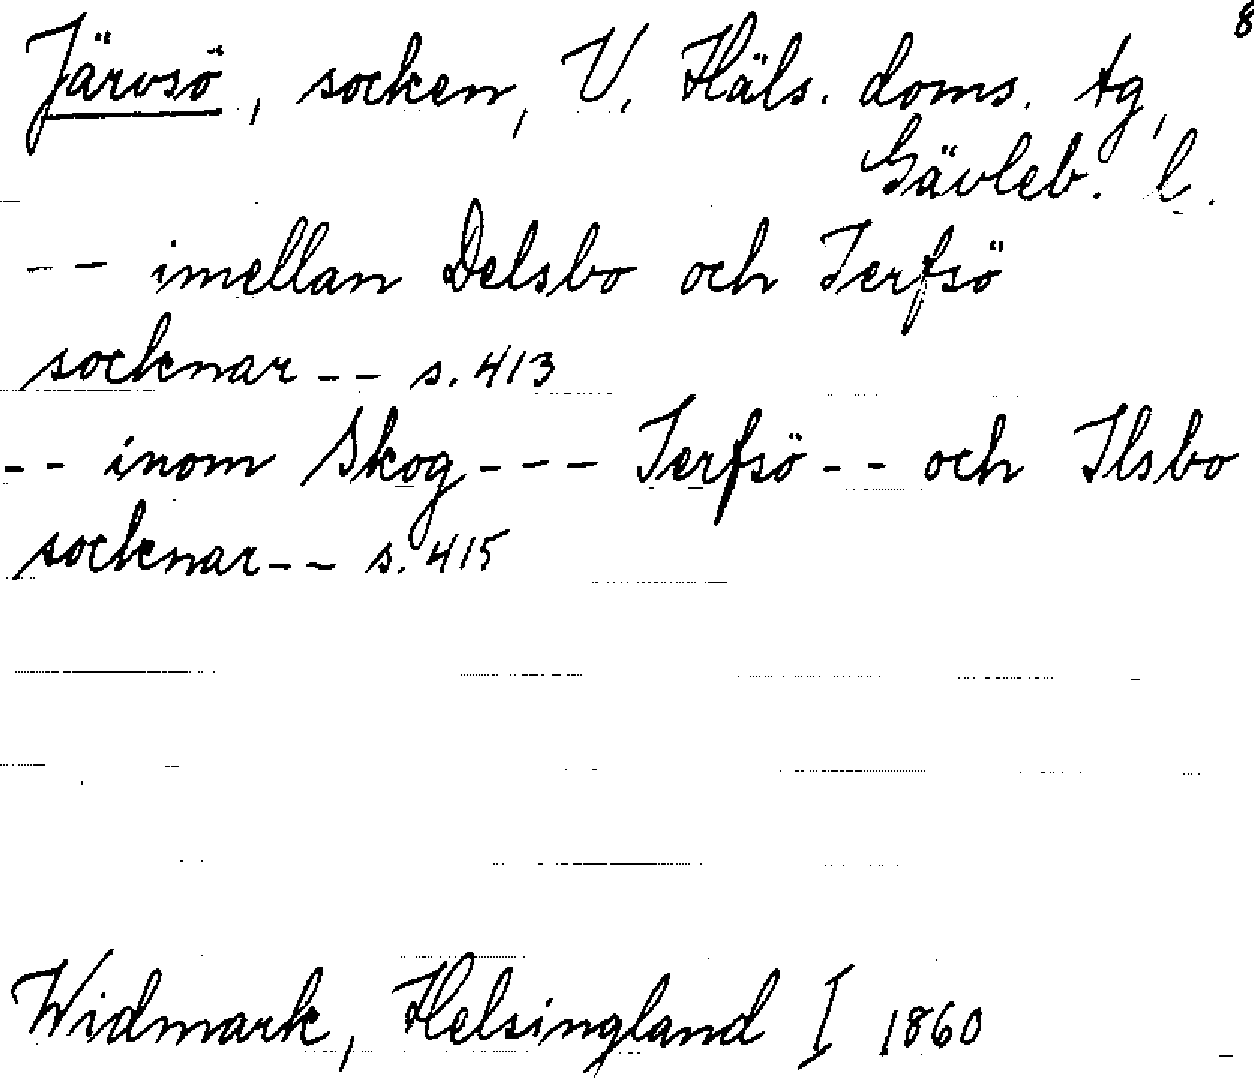 8
Järvsö, socken, V. Häls. doms. tg,
Gävleb. l.
-- imellan Delsbo och Jerfsö
socknar -- s. 413
-- inom Skog --- Jerfsö -- och Ilsbo
socknar -- s. 415
Widmark, Helsingland I 1860